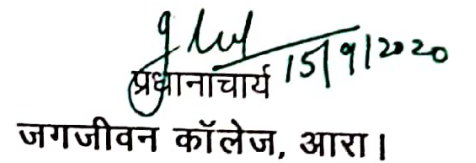 15/9/2020
प्रधानाचार्य
जगजीवन कॉलेज, आरा।